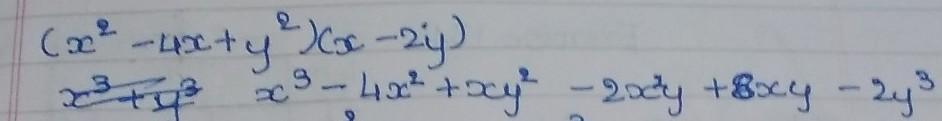 (x² - 4x + y²)(x - 2y)
x³ + y³ x³ - 4x² + xy² - 2x²y + 8xy - 2y³